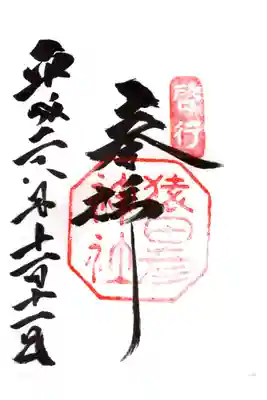 啓行
奉拝
猿田彦
神社
平成二六年十一月十一日